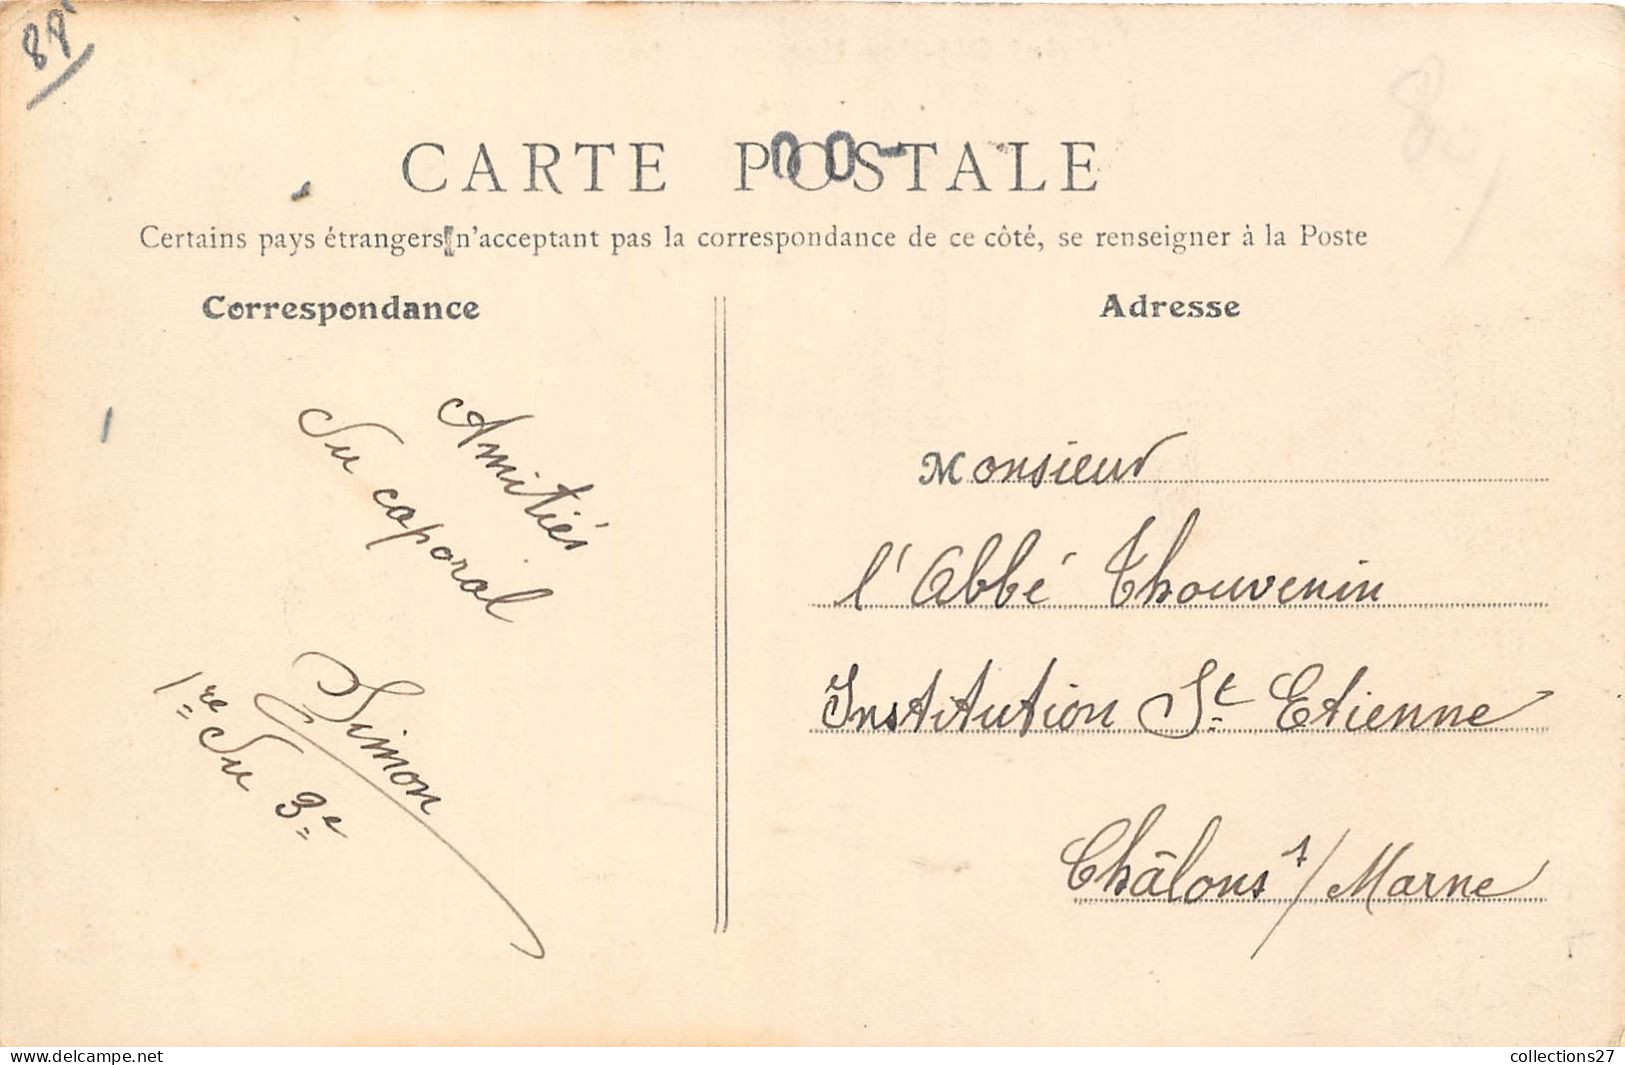 88
CARTE POSTALE
00-
Certains pays étrangers n'acceptant pas la correspondance de ce côté, se renseigner à la Poste
Correspondance
Amitiés
Du caporal
Simon
1re Du 3e
Adresse
Monsieur
l'Abbé Thouvenin
Institution St Etienne
Châlons s/Marne
collections27